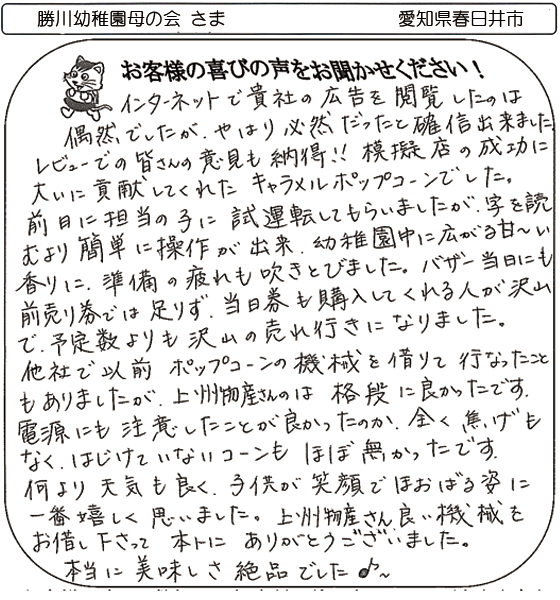 勝川幼稚園母の会 さま 愛知県春日井市
お客様の喜びの声をお聞かせください！
インターネットで貴社の広告を閲覧したのは
偶然でしたが、やはり必然だったと確信出来ました
レビューでの皆さんの意見も納得!! 模擬店の成功に
大いに貢献してくれた キャラメルポップコーンでした。
前日に担当の子に 試運転してもらいましたが、字を読
むより簡単に操作が出来、幼稚園中に広がる甘〜い
香りに、準備の疲れも吹きとびました。バザー当日にも
前売り券では足りず、当日券も購入してくれる人が沢山
で、予定数よりも沢山の売れ行きになりました。
他社で以前 ポップコーンの機械を借りて行なったこと
もありましたが、上州物産さんのは 格段に良かったです。
電源にも注意したことが良かったのか、全く焦げも
なく、はじけていないコーンも ほぼ無かったです。
何より天気も良く、子供が笑顔でほおばる姿に
一番嬉しく思いました。上州物産さん良い機械を
お借し下さって 本トに ありがとうございました。
本当に美味しさ絶品でした♪〜